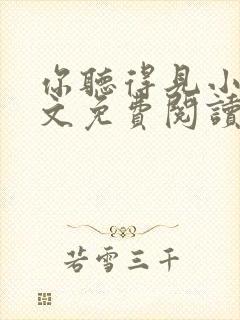 你聽得見小
文免費閱讀
若雪三千